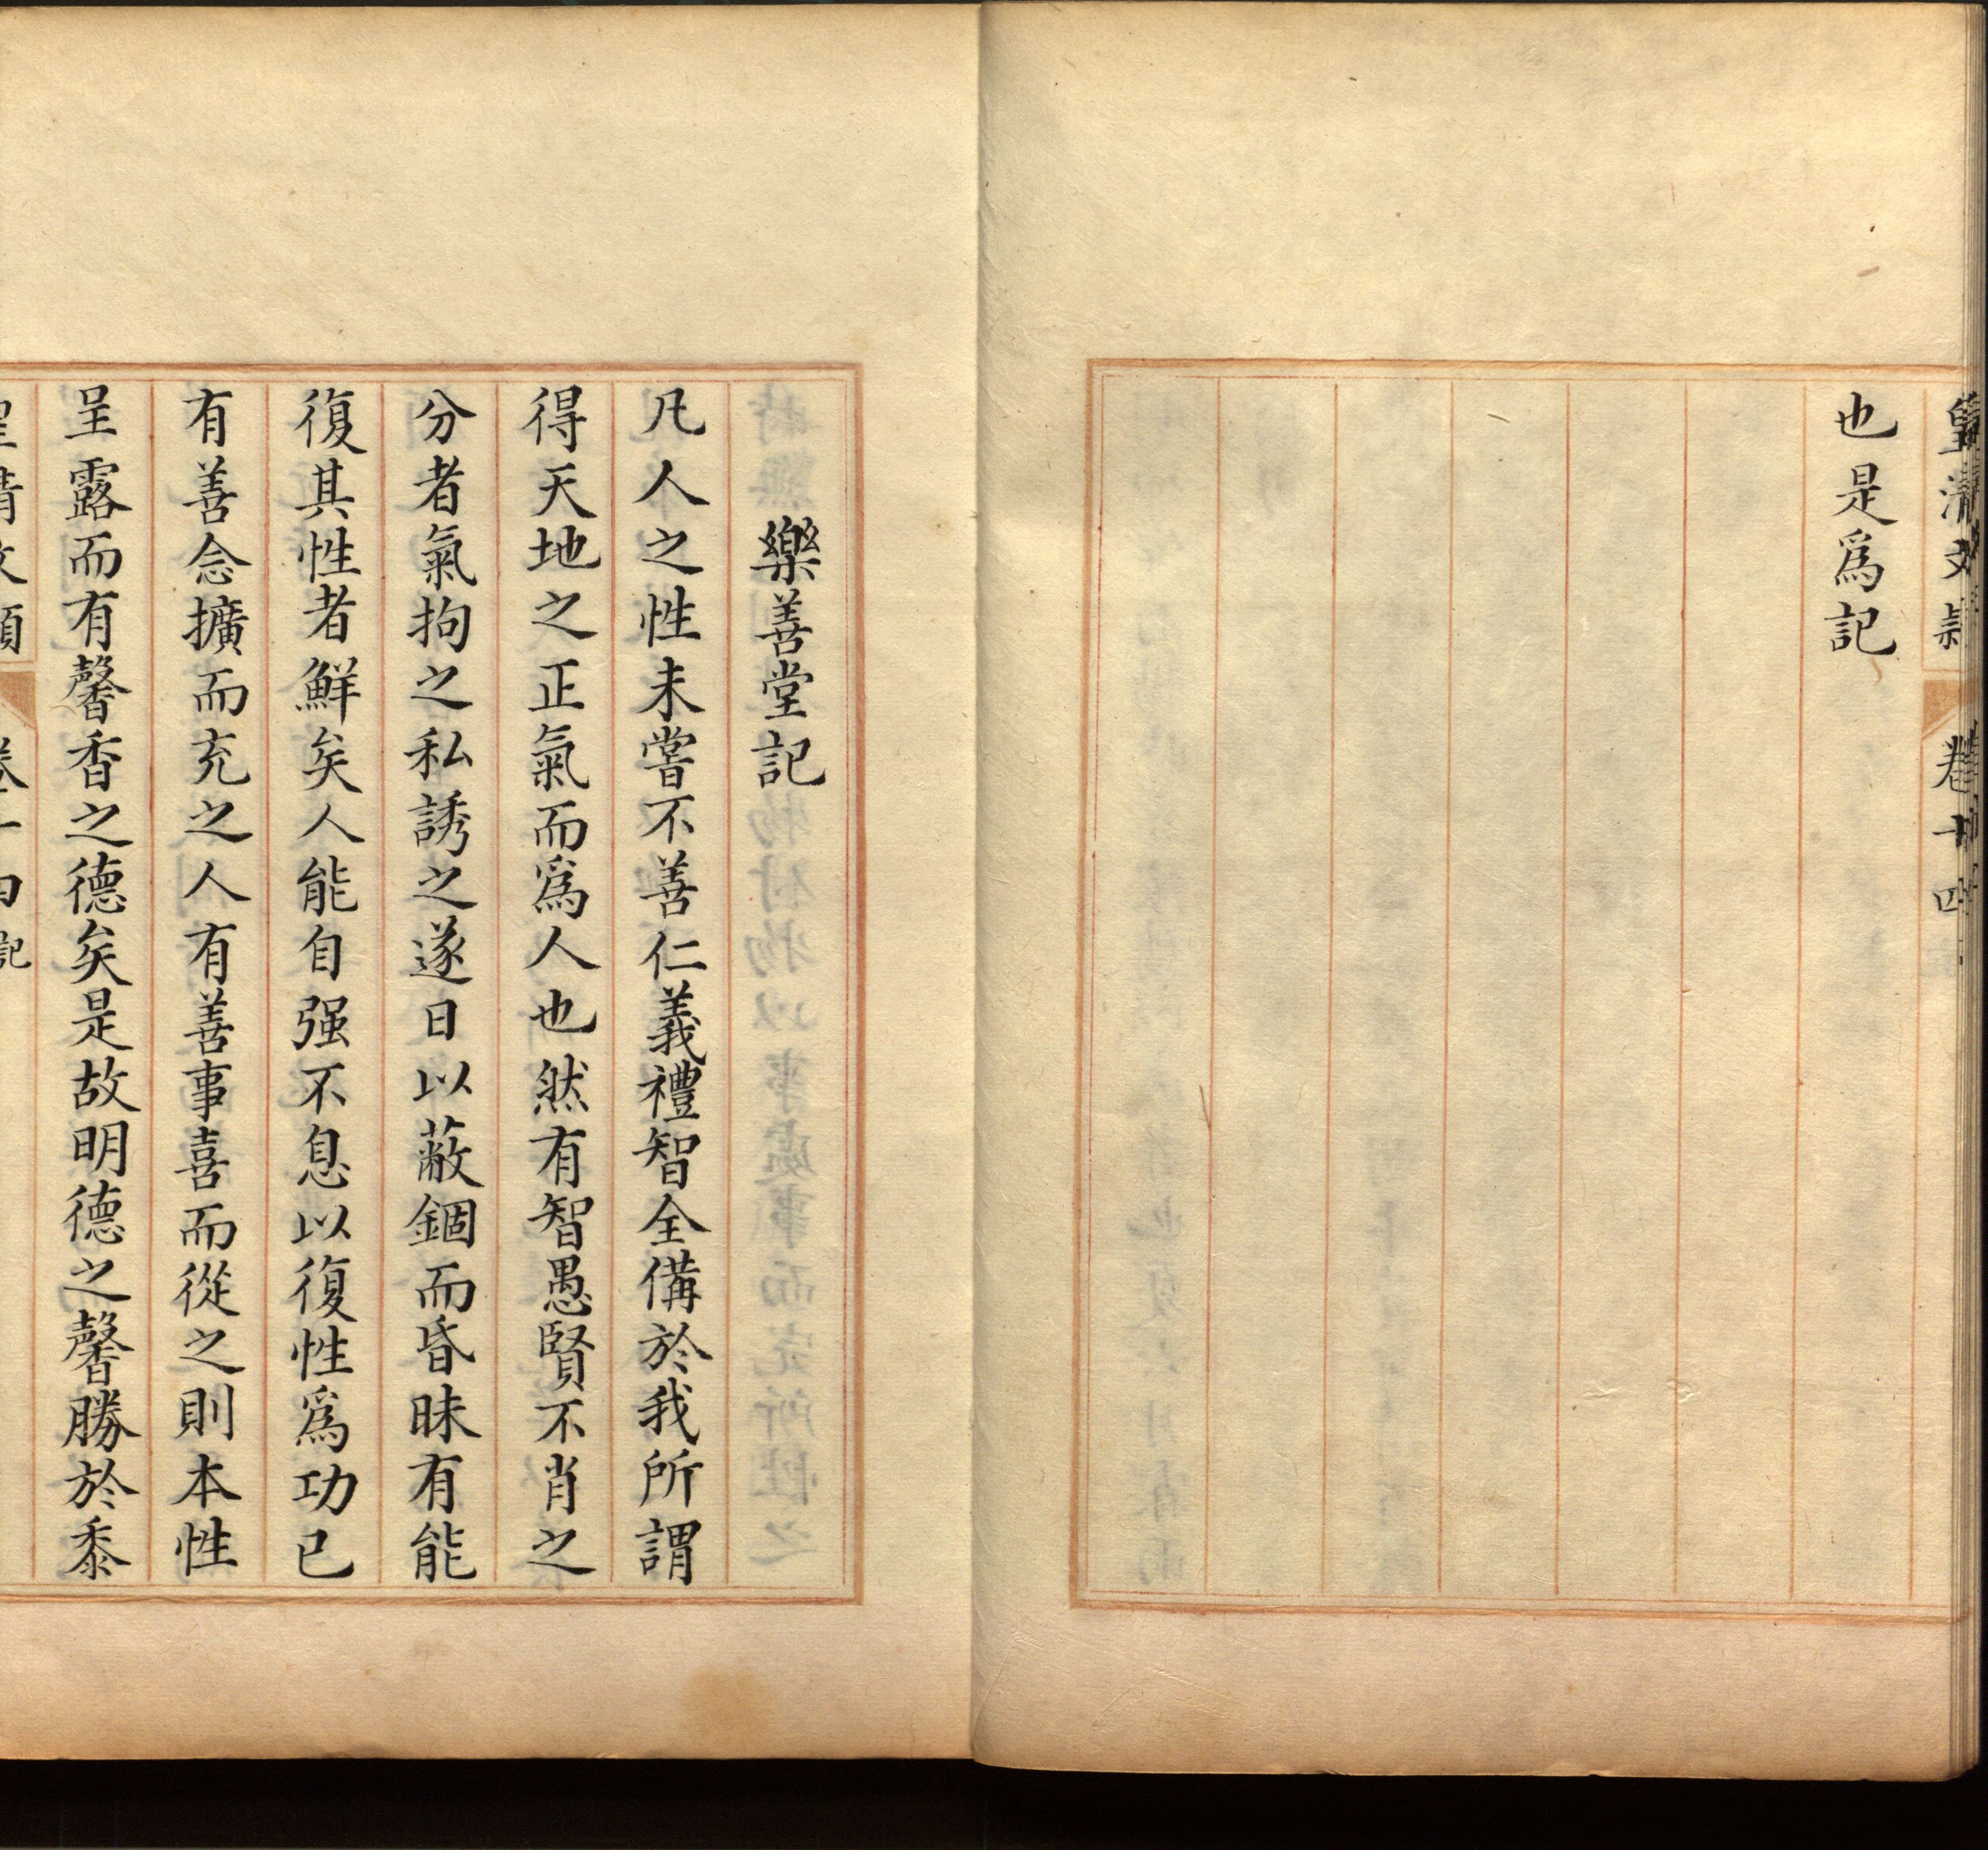 皇清文穎
卷十四
也是爲記
樂善堂記
凡人之性未嘗不善仁義禮智全備於我所謂
得天地之正氣而爲人也然有智愚賢不肖之
分者氣拘之私誘之遂日以蔽錮而昏昧有能
復其性者鮮矣人能自强不息以復性爲功已
有善念擴而充之人有善事喜而從之則本性
呈露而有馨香之德矣是故明德之馨勝於黍
皇清文穎
卷十四記